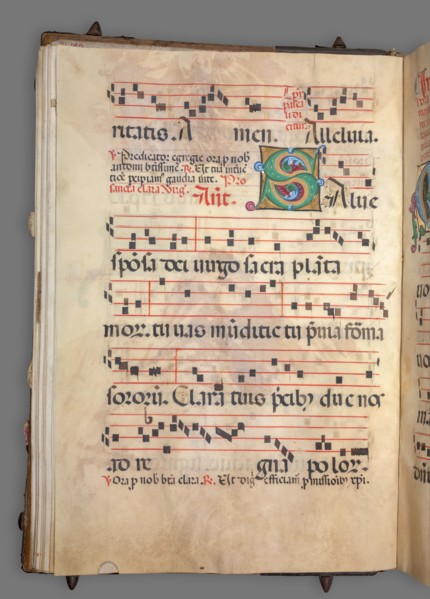 ritatis. A men. Alleluia.
℣ Predicator egregie ora p nob
antoni btissime. ℟. Ut tua
gaudia Pro
sancta clara Ant.
Salue
spōsa dei uirgo sacra plāta
mor. tu uas mūditie tu pma foma
sororū. Clara tuis pcib) duc nos
ad re gna polor.
℣ Ora p nob bta clara. ℟. Ut dig efficiam pmissioib) xpi.